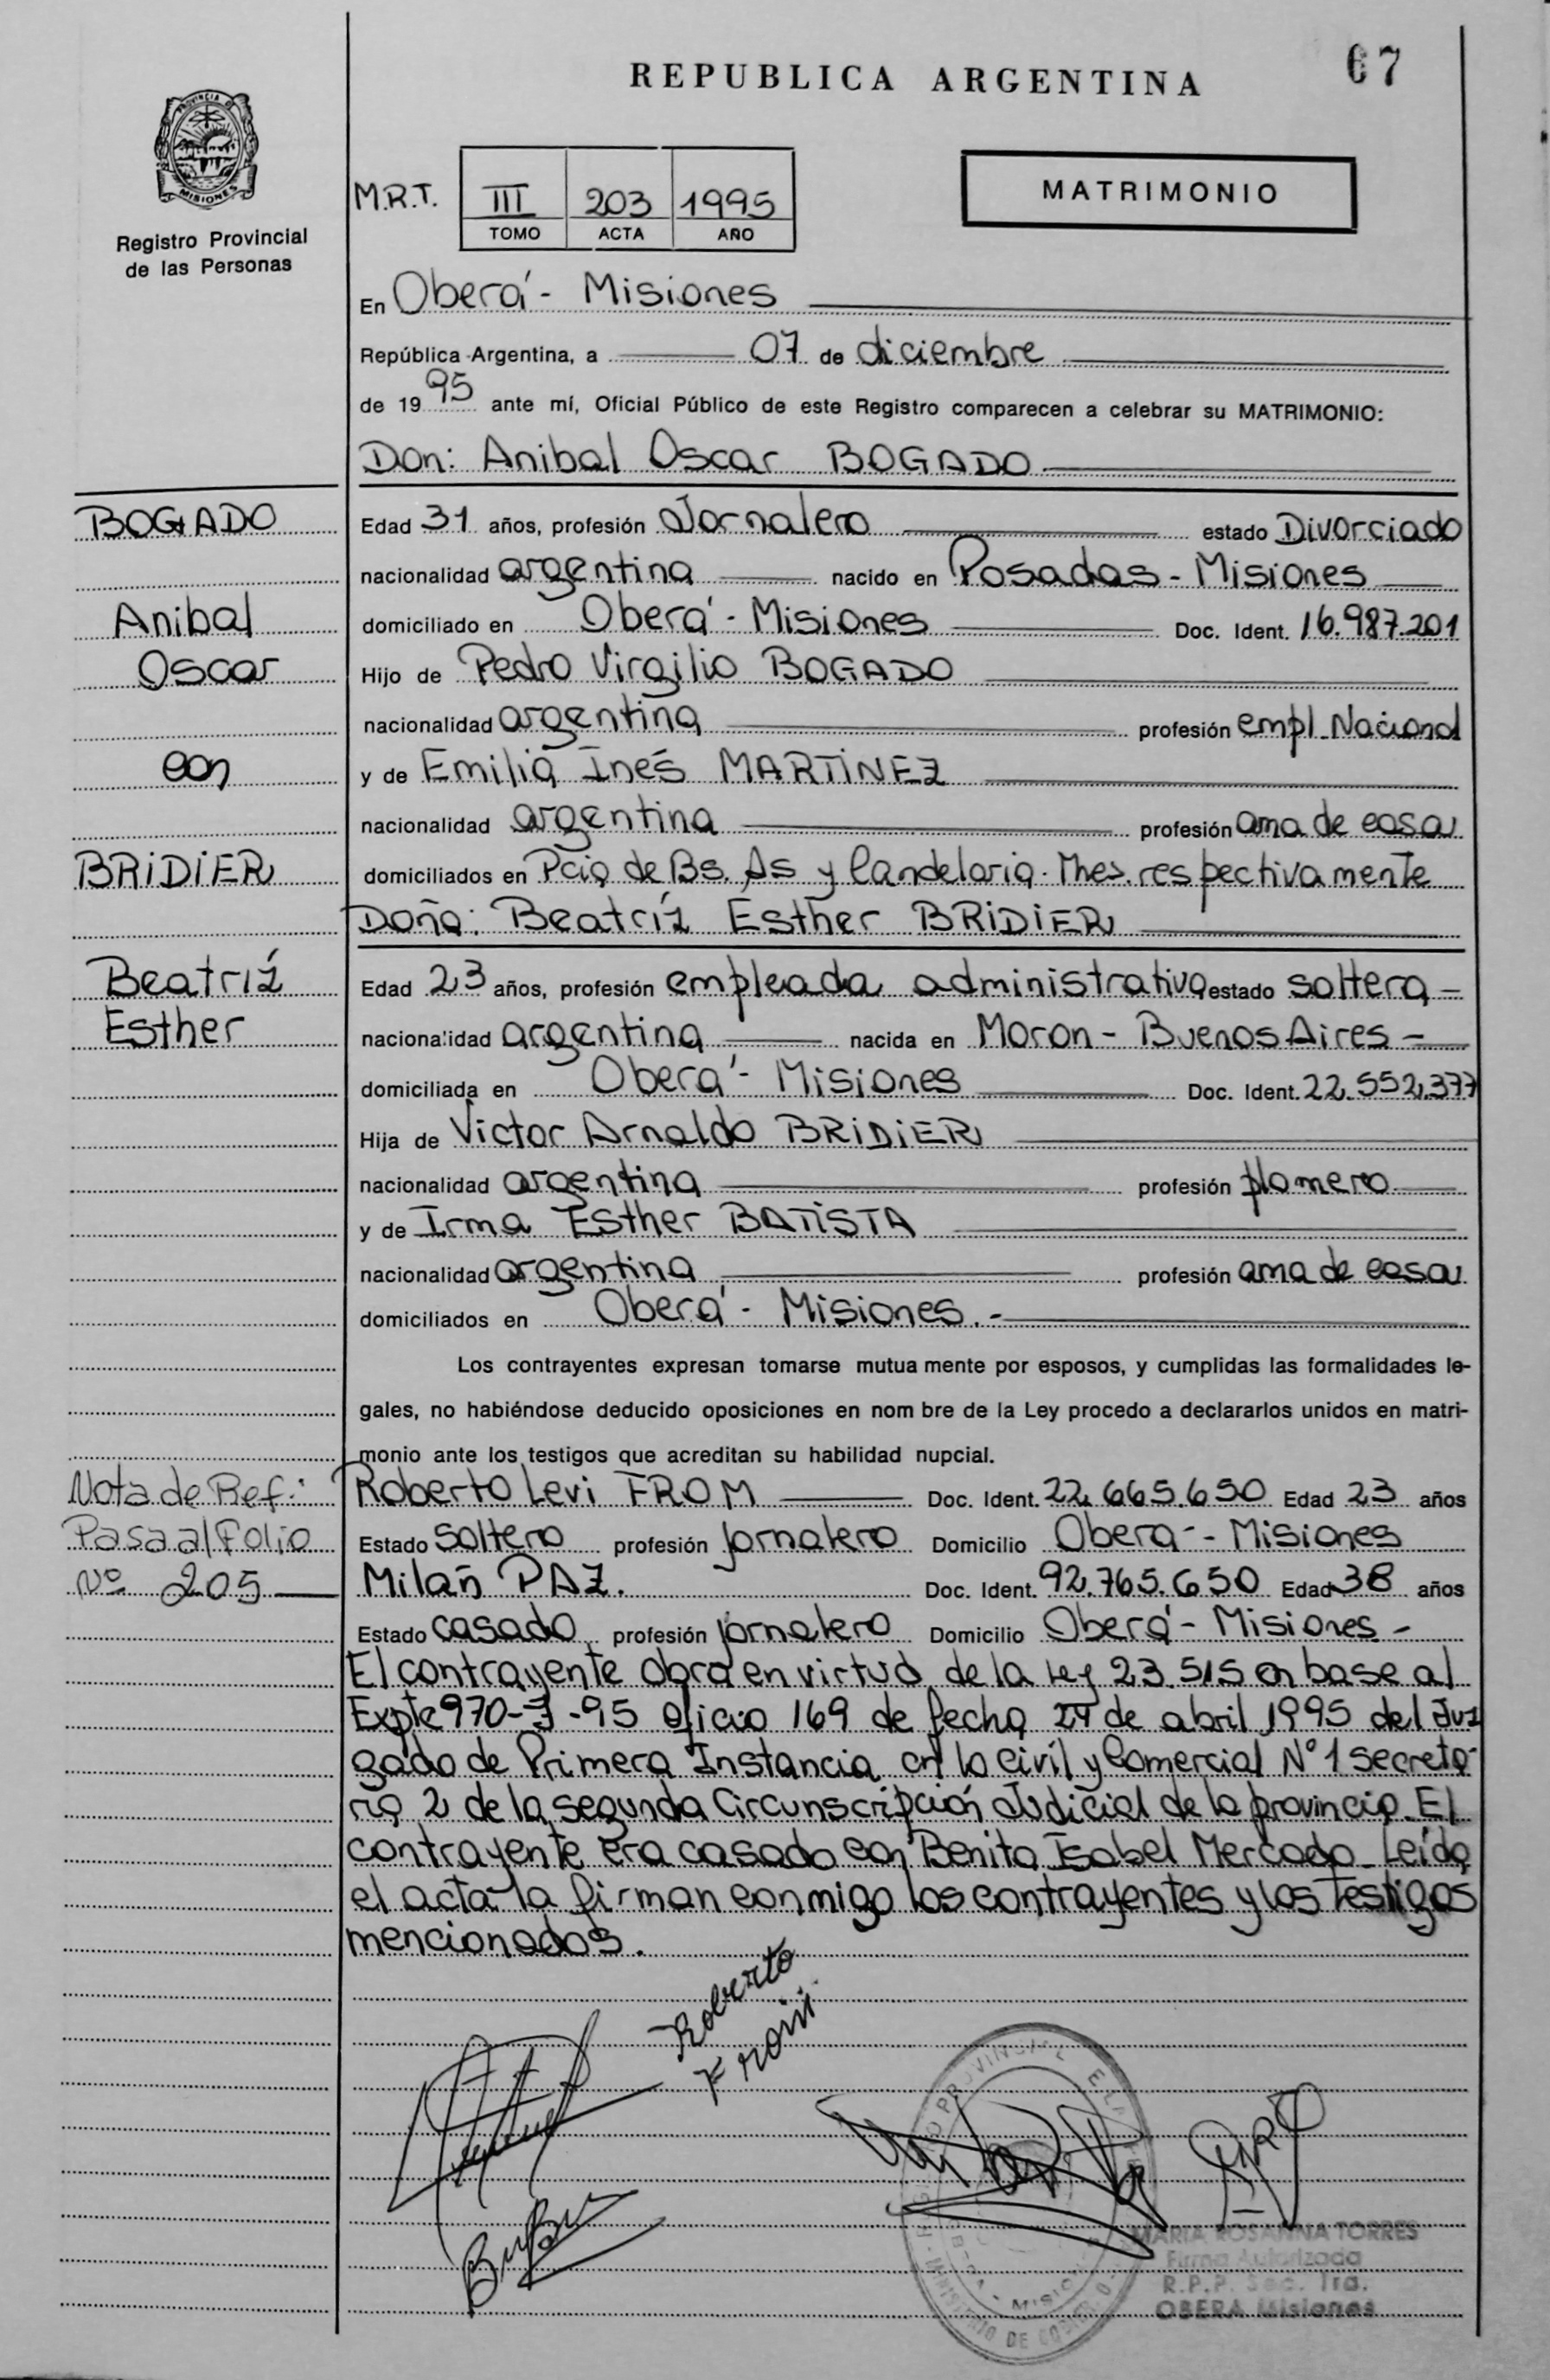 REPUBLICA ARGENTINA
67
PROVINCIA D
MISIONES
Registro Provincial
de las Personas
M.R.T.
III 203 1995
TOMO ACTA AÑO
MATRIMONIO
En Oberá - Misiones
República Argentina, a 07 de diciembre
de 19 95 ante mí, Oficial Público de este Registro comparecen a celebrar su MATRIMONIO:
Don: Anibal Oscar BOGADO
BOGADO
Edad 31 años, profesión Jornalero estado Divorciado
nacionalidad argentina nacido en Posadas - Misiones
Anibal
domiciliado en Oberá - Misiones Doc. Ident. 16.987.201
Oscar
Hijo de Pedro Virgilio BOGADO
nacionalidad argentina profesión empl. Nacional
con
y de Emilia Inés MARTINEZ
nacionalidad argentina profesión ama de casa
BRIDIER
domiciliados en Pcia de Bs. As y Candelaria. Mnes. respectivamente
Doña: Beatríz Esther BRIDIER
Beatríz
Edad 23 años, profesión empleada administrativa estado soltera -
Esther
nacionalidad argentina nacida en Moron - Buenos Aires -
domiciliada en Oberá - Misiones Doc. Ident. 22.552.377
Hija de Victor Arnaldo BRIDIER
nacionalidad argentina profesión plomero
y de Irma Esther BATISTA
nacionalidad argentina profesión ama de casa
domiciliados en Oberá - Misiones.-
Los contrayentes expresan tomarse mutua mente por esposos, y cumplidas las formalidades le-
gales, no habiéndose deducido oposiciones en nom bre de la Ley procedo a declararlos unidos en matri-
monio ante los testigos que acreditan su habilidad nupcial.
Nota de Ref.:
Roberto Levi FROM Doc. Ident. 22.665.650 Edad 23 años
Pasa al Folio
Estado soltero profesión jornalero Domicilio Oberá - Misiones
Nº 205
Milan PAZ. Doc. Ident. 92.765.650 Edad 38 años
Estado casado profesión jornalero Domicilio Oberá - Misiones -
El contrayente obra en virtud de la Ley 23.515 en base al
Expte 970- -95 oficio 169 de fecha de abril 1995 del Juz
gado de Primera Instancia en lo Civil y Comercial Nº 1 secreta-
ria 2 de la segunda Circunscripción Judicial de la provincia. El
contrayente era casado con Benita Isabel Mercado. Leída
el acta la firman conmigo los contrayentes y los testigos
mencionados.
Roberto
From
MARIA ROSANNA TORRES
Firma Autorizada
R.P.P. Sec. 1ra.
OBERA Misiones